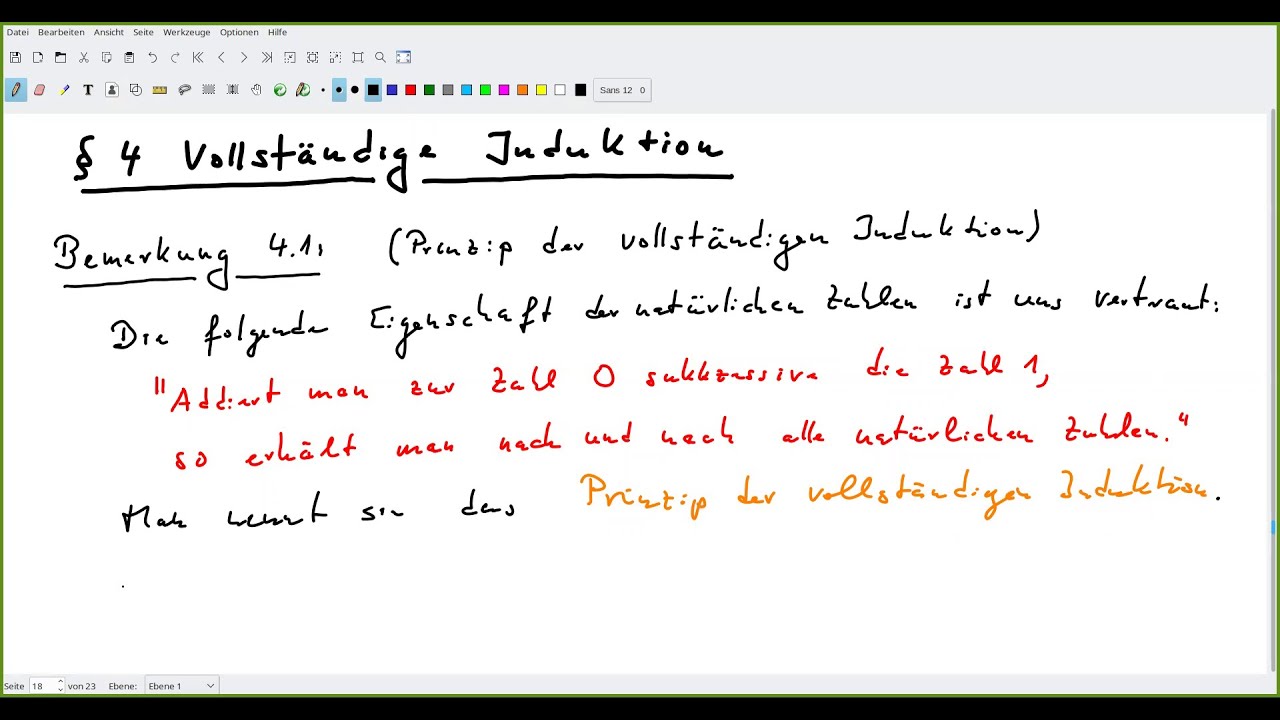 Datei Bearbeiten Ansicht Seite Werkzeuge Optionen Hilfe
T Sans 12 0
§ 4 Vollständige Induktion
Bemerkung 4.1: (Prinzip der vollständigen Induktion)
Die folgende Eigenschaft der natürlichen Zahlen ist uns vertraut:
"Addiert man zur Zahl 0 sukkzessive die Zahl 1,
so erhält man nach und nach alle natürlichen Zahlen."
Man nennt sie das Prinzip der vollständigen Induktion.
Seite 18 von 23 Ebene: Ebene 1